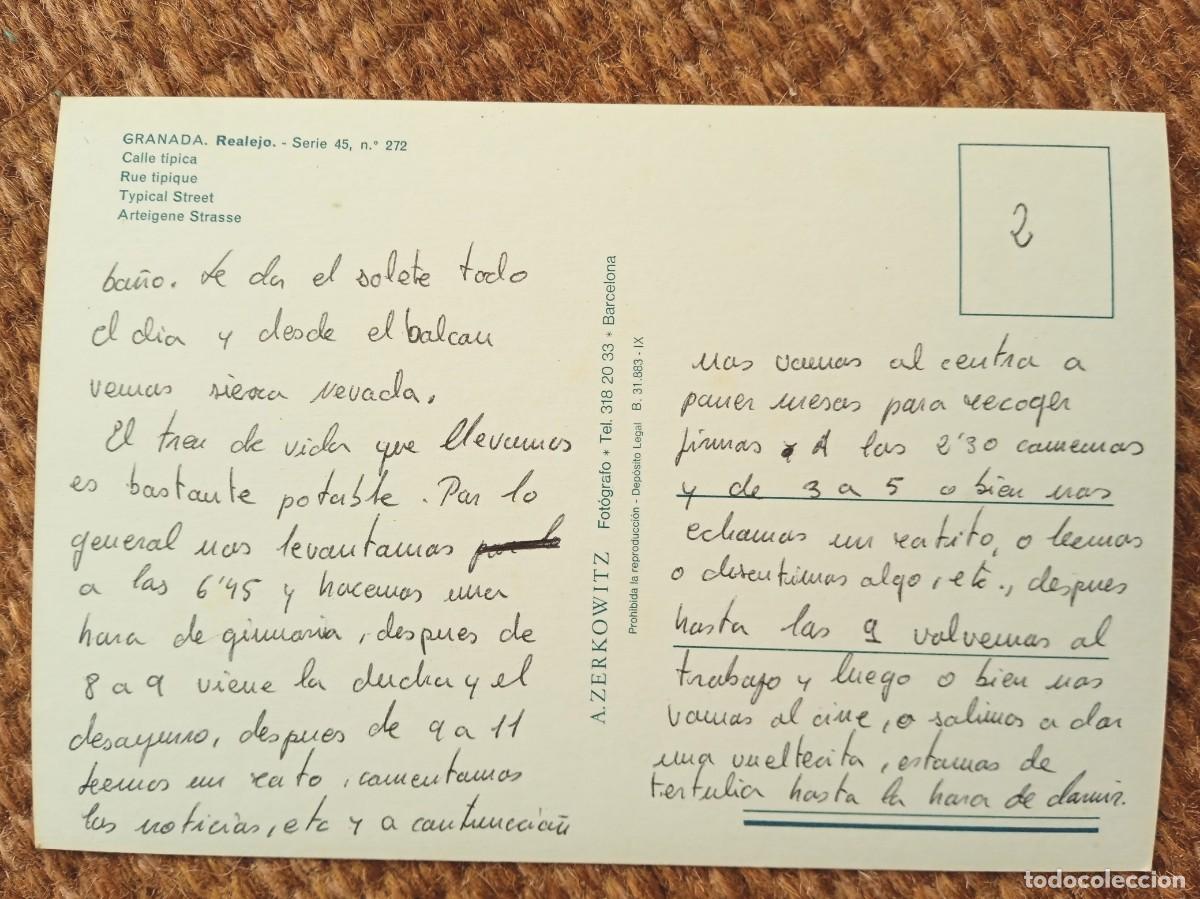 GRANADA. Realejo. - Serie 45, n.° 272
Calle tipica
Rue tipique
Typical Street
Arteigene Strasse
baño. Le da el solete todo
el dia y desde el balcon
vemos sierra nevada.
El tren de vida que llevamos
es bastante potable. Por lo
general nos levantamos
a las 6'45 y hacemos una
hora de gimnasia, despues de
8 a 9 viene la ducha y el
desayuno, despues de 9 a 11
leemos un rato, comentamos
las noticias, etc y a continuación
A. ZERKOWITZ Fotógrafo * Tel. 318 20 33 * Barcelona
Prohibida la reproducción - Depósito Legal B. 31.883 - IX
2
nos vamos al centro a
poner mesas para recoger
firmas y A las 2'30 comemos
y de 3 a 5 o bien nos
echamos un ratito, o leemos
o discutimos algo, etc., despues
hasta las 9 volvemos al
trabajo y luego o bien nos
vamos al cine, o salimos a dar
una vueltecita, estamos de
tertulia hasta la hora de dormir.
todocoleccion